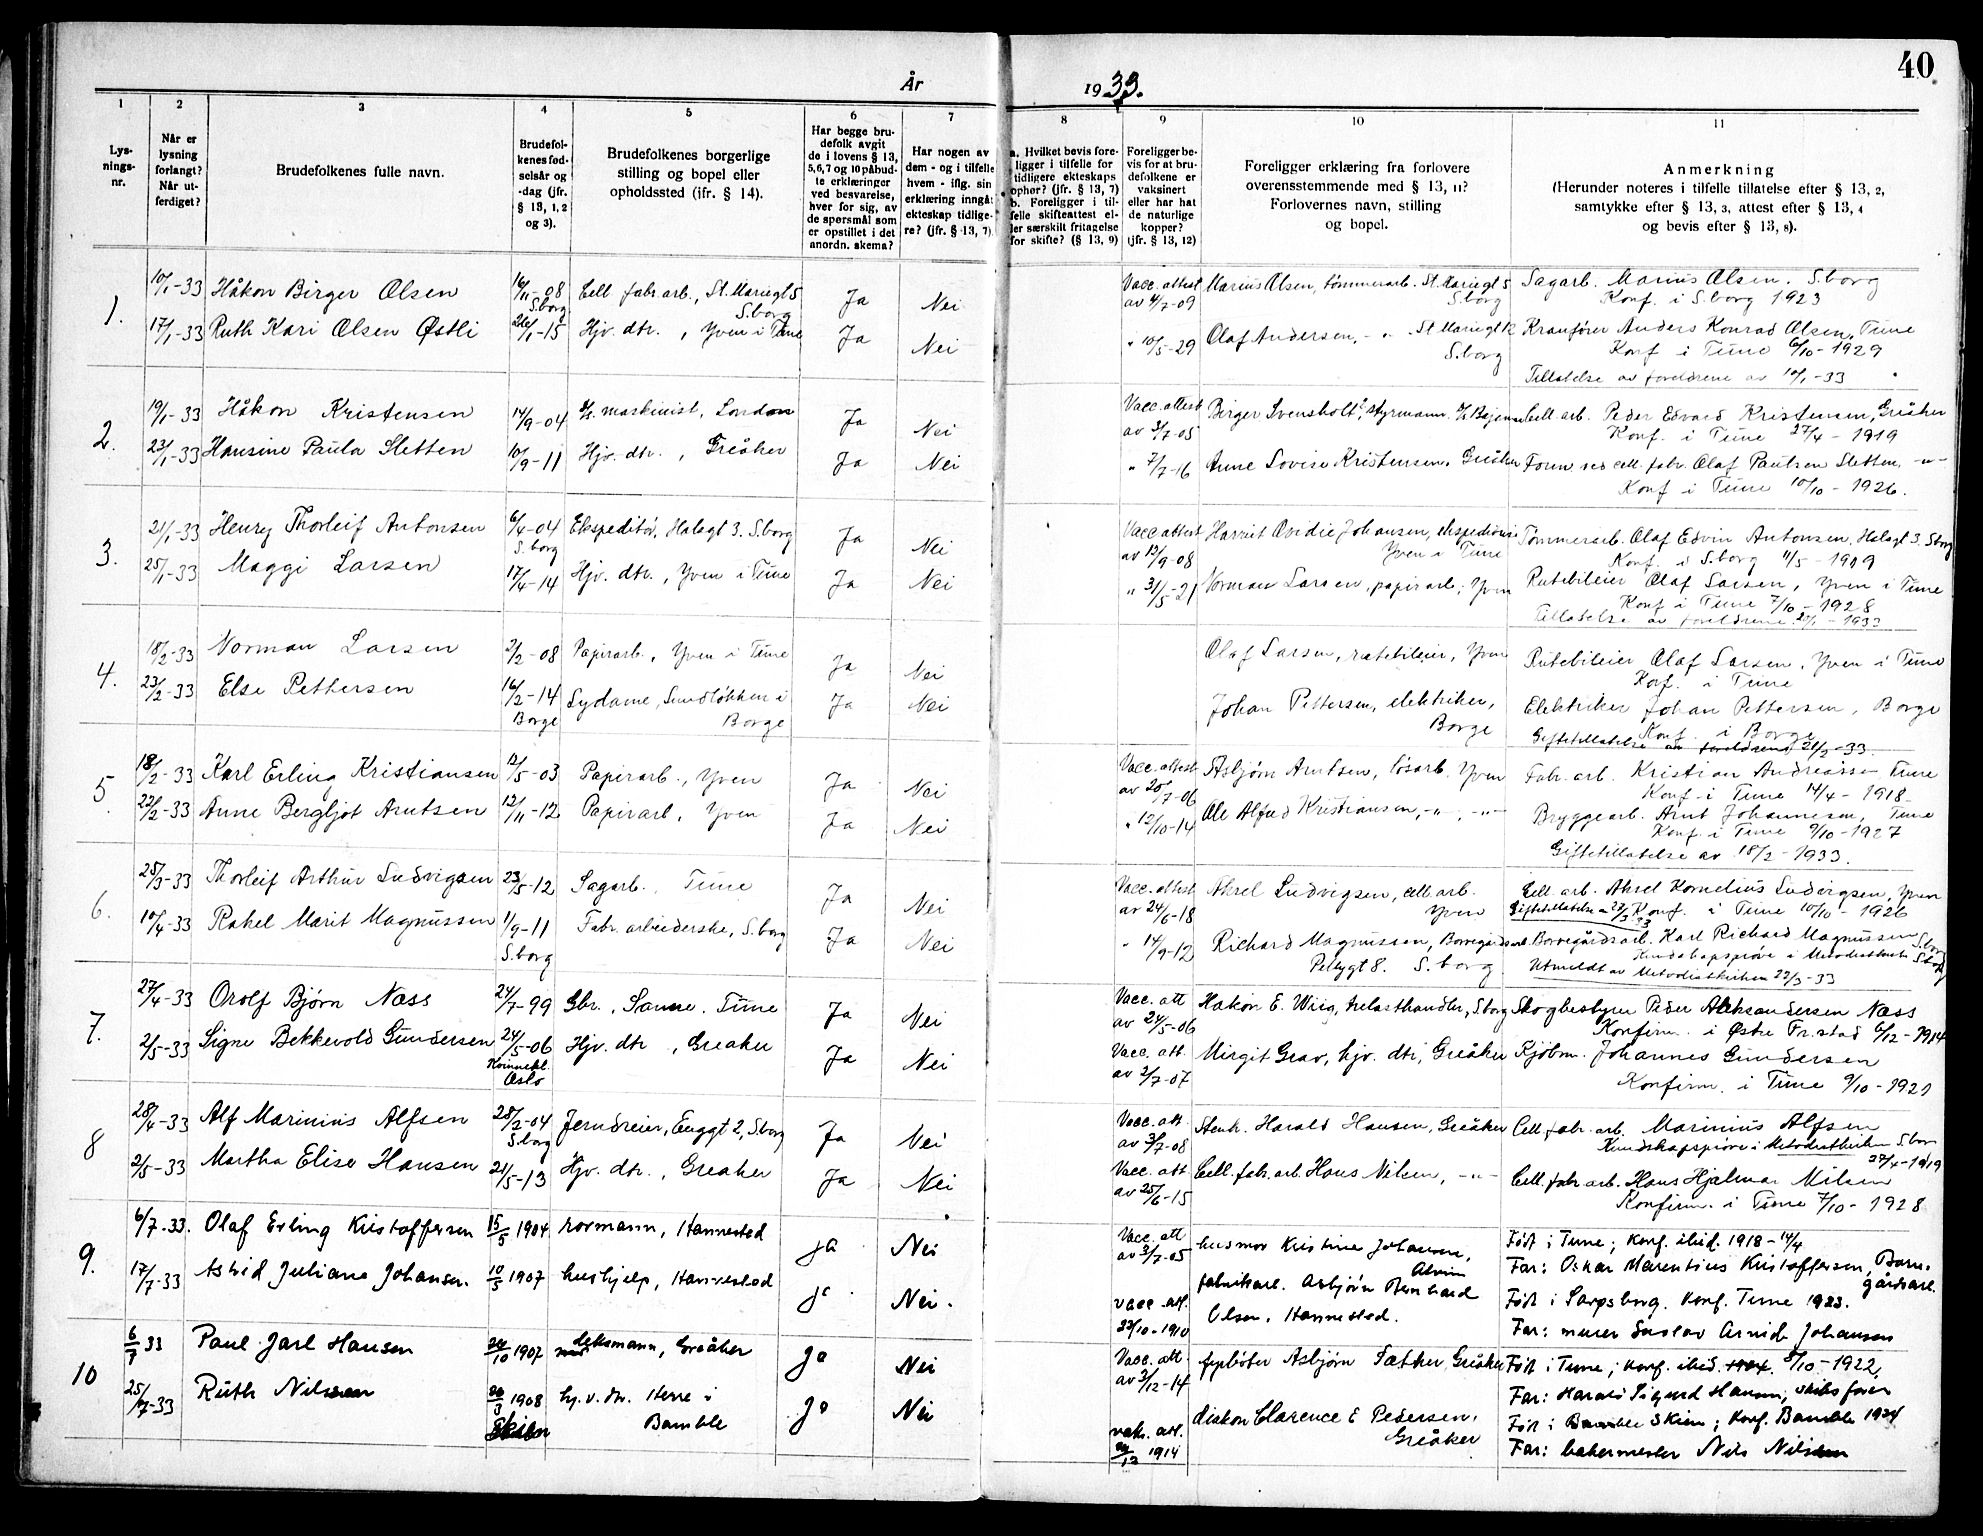 40
År 1933.
1
2
3
4
5
6
7
8
9
10
11
Lys-
nings-
nr.
Når er
lysning
forlangt?
Når ut-
ferdiget?
Brudefolkenes fulle navn.
Brudefol-
kenes fød-
selsår og
-dag (jfr.
§ 13, 1, 2
og 3).
Brudefolkenes borgerlige
stilling og bopel eller
opholdssted (jfr. § 14).
Har begge bru-
defolk avgit
de i lovens § 13,
5,6,7 og 10 påbud-
te erklæringer
ved besvarelse,
hver for sig, av
de spørsmål som
er opstillet i det
anordn. skema?
Har nogen av
dem - og i tilfelle
hvem - iflg. sin
erklæring inngåt
ekteskap tidlige-
re? (jfr. § 13, 7)
a. Hvilket bevis fore-
ligger i tilfelle for
tidligere ekteskaps
ophør? (jfr. § 13, 7)
b. Foreligger i til-
felle skifteattest el-
ler særskilt fritagelse
for skifte? (§ 13, 9)
Foreligger be-
vis for at bru-
defolkene er
vaksinert
eller har hat
de naturlige
kopper?
(jfr. § 13, 12)
Foreligger erklæring fra forlovere
overensstemmende med § 13, 11?
Forlovernes navn, stilling
og bopel.
Anmerkning
(Herunder noteres i tilfelle tillatelse efter § 13, 2,
samtykke efter § 13, 3, attest efter § 13, 4
og bevis efter § 13, 8).
1.
10/1-33 Håkon Birger Olsen 14/11-08 Cell. fabr. arb., St. Mariegt 5 Ja Nei Vacc. attest Marius Olsen, tømmerarb. St. Mariegt 5 Sagarb. Marius Olsen. S.borg
S.borg S.borg av 4/7-09 S.borg Konf. i S.borg 1923
17/1-33 Ruth Kari Olsen Østli 26/1-15 Hjv. dtr., Yven i Tune Ja Nei " 10/5-29 Olaf Andersen, - " - St. Mariegt 12 Kranfører Anders Konrad Olsen, Tune
S.borg Konf i Tune 6/10-1929
Tillatelse av foreldrene av 10/1-33
2.
19/1-33 Håkon Kristensen 14/9-04 maskinist, London Ja Nei Vacc. attest Birger Svensholt, styrmann Cell. arb. Peder Edvard Kristensen, Greåker
av 3/7-05 Konf. i Tune 27/4-1919
23/1-33 Hansine Paula Sletten 10/9-11 Hjv. dtr., Greåker Ja Nei " 7/7-16 Anne Lovise Kristensen, Greåker Form. ved cell. fabr. Olaf Paulsen Sletten, -"-
Konf i Tune 10/10-1926.
3.
21/1-33 Henry Thorleif Antonsen 6/4-04 Ekspeditør, Halsgt 3. S.borg Ja Nei Vacc. attest Harriet Ovidie Johansen, ekspeditrise Tømmerarb. Olaf Edvin Antonsen, Halsgt 3. S.borg
S.borg av 13/9-08 Yven i Tune Konf. i S.borg 11/5-1919
25/1-33 Maggi Larsen 17/4-14 Hjv. dtr., Yven i Tune Ja Nei " 31/5-21 Norman Larsen, papirarb., Yven Rutebileier Olaf Larsen, Yven i Tune
Konf i Tune 7/10-1928
Tillatelse av foreldrene 20/1-1933
4.
18/2-33 Norman Larsen 2/2-08 Papirarb., Yven i Tune Ja Nei Olaf Larsen, rutebileier, Yven Rutebileier Olaf Larsen, Yven i Tune
Konf. i Tune
23/2-33 Else Pettersen 16/2-14 Sydame, Sundløkken i Ja Nei Johan Pettersen, elektriker, Elektriker Johan Pettersen, Borge
Borge Borge Borge Konf. i Borge
Giftetillatelse av foreldrene 21/2-33
5
18/2-33 Karl Erling Kristiansen 12/5-03 Papirarb., Yven Ja Nei Vacc. attest Asbjørn Arntsen, løsarb. Yven Fabr. arb. Kristian Andreassen Tune
av 25/7-06 Konf. i Tune 14/4-1918
22/2-33 Anne Bergljot Arntsen 12/11-12 Papirarb., Yven Ja Nei " 12/10-14 Ole Alfred Kristiansen, -"-, -"- Bryggearb. Arnt Johannesen, Tune
Konf. i Tune 9/10-1927
Giftetillatelse av 18/2-1933.
6.
25/3-33 Thorleif Arthur Ludvigsen 23/5-12 Sagarb. Tune Ja Nei Vacc. attest Aksel Ludvigsen, cell. arb. Cell. arb. Aksel Kornelius Ludvigsen, Yven
av 24/6-18 Yven Giftetillatelse 27/3 33 Konf. i Tune 10/10-1926
10/4-33 Rakel Marit Magnussen 1/9-11 Fabr. arbeiderske, S.borg Ja Nei " 14/9-12 Richard Magnussen, Borregårdsarb. Borregårdsarb. Karl Richard Magnussen S.borg
S.borg Pellygt 8. S.borg Kundskapsprøve i Metodistkirken S.borg
Utmeldt av Metodistkirken 22/3-33
7.
27/4-33 Orolf Bjørn Næss 24/7-99 Gbr., Sanne, Tune Ja Nei Vacc. att Hakon E. Wiig, trelasthandler, S.borg Skogbestyrer Peder Aleksandersen Næss
av 24/5-06 Konfirm. i Østre Fr.stad 6/12-1914
2/5-33 Signe Bekkevold Gundersen 24/5-06 Hjv. dtr, Greåker Ja Nei Vacc. att. Mirgit Grav, hjv. dtr, Greåker Kjøbm. Johannes Gundersen
Oslo av 2/7-07 Konfirm. i Tune 9/10-1921
8
28/4-33 Alf Marinius Alfsen 28/2-04 Jerndreier, Enggt 2, S.borg Ja Nei Vacc. att. Stenh. Harald Hansen, Greåker Cell. fabr. arb. Marinius Alfsen
S.borg av 3/7-08 Kundskapsprøve i Metodistkirken S.borg
27/4-1919
2/5-33 Martha Elise Hansen 21/5-13 Hjv. dtr., Greåker Ja Nei Vacc. att Cell. fabr. arb. Hans Nilsen, -"- Cell. fabr arb. Hans Hjalmar Nilsen
av 25/6-15 Konfirm. i Tune 7/10-1928
9.
6/7-33. Olaf Erling Kristoffersen 15/3 1904 rormann, Hannestad ja Nei Vacc. att husmor Kristine Johansen, Født i Tune; konf. ibid. 1918-14/4
av 3/7-05 Alvim Far: Oskar Marentius Kristoffersen, Borre-
gårdsarb.
17/7-33 Astrid Juliane Johansen. 10/5 1907 hushjelp, Hannestad ja Nei. vacc. att. fabrikarb. Asbjørn Bernhard Født i Sarpsborg. Konf. Tune 1923.
23/10-1910 Olsen, Hannestad. Far: murer Gustav Arvid Johansen
10
6/7 33 Paul Jarl Hansen 20/10 1907 dekksmann, Greåker Ja Nei Vacc. att. fyrbøter Asbjørn Sæther, Greåker Født i Tune; konf. ibid. 8/10-1922,
av 3/12-14 Far: Harald Sigurd Hansen, skibsfører
25/7-33 Ruth Nilsen 1908 hj. v. dtr. Herre i Ja Nei vaks. att. diakon Clarence E Pedersen, Født i Skien; konf. Bamble 1924
Skien Bamble 1914 Greåker Far: bakermester Nils Nilsen